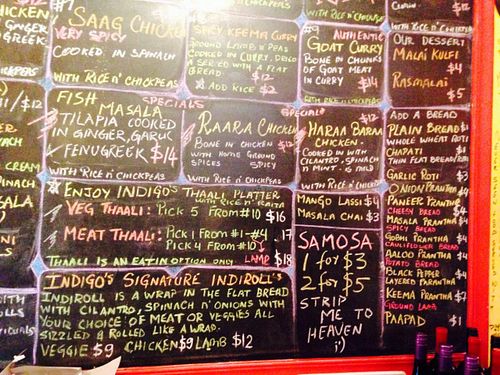 #7
SAAG CHICKEN
VERY SPICY
COOKED IN SPINACH
WITH RICE N' CHICKPEAS
SPICY KEEMA CURRY
GROUND LAMB N' PEAS
COOKED IN CURRY, DRIED
A SERVED WITH A FLAT
BREAD. $12
ADD RICE $2
WITH RICE N' CHICKPEAS
#9 AUTHENTIC
GOAT CURRY
BONE IN CHUNKS
OF GOAT MEAT
IN CURRY $14
WITH RICE N' CHICKPEAS
WITH RICE N'
OUR DESSERT
MALAI KULFI
$4
RASMALAI
$5
CHICKEN
GINGER
GREEK
CHICKPEAS
SPECIALS
FISH
MASALA
TILAPIA COOKED
IN GINGER, GARLIC
FENUGREEK $14
WITH RICE N' CHICKPEAS
RAARA CHICKEN
BONE IN CHICKEN
WITH HOME GROUND
SPICES
WITH RICE N' CHICKPEAS
SPECIALS
HARAA BARAA
CHICKEN
COOKED IN WITH
CILANTRO, SPINACH
N MINT. IS MILD
WITH RICE N' CHICKPEAS
ADD A BREAD
PLAIN BREAD $1
WHOLE WHEAT ROTI
CHAPATI $1
THIN FLAT BREAD/ROTI
GARLIC ROTI $3
ONION PRANTHA $4
PANEER PRANTHA
CHEESY BREAD $4
MASALA PRANTHA $4
SPICY BREAD
GOBHI PRANTHA $4
CAULIFLOWER BREAD
AALOO PRANTHA $4
POTATO BREAD
BLACK PEPPER $4
LAYERED PARANTHA
KEEMA PRANTHA $7
GROUND LAMB
PAAPAD $1
ENJOY INDIGO'S THAALI PLATTER
WITH RICE N' RAITA
VEG THAALI: PICK 5 FROM #10 $16
MEAT THAALI: PICK 1 FROM #1-#4 17
PICK 4 FROM #10
THAALI IS AN EAT IN OPTION ONLY LAMB $18
MANGO LASSI $4
MASALA CHAI $3
SAMOSA
1 for $3
2 for $5
STRIP
ME TO
HEAVEN
;)
INDIGO'S SIGNATURE INDIROLL'S
INDIROLL IS A WRAP IN THE FLAT BREAD
WITH CILANTRO, SPINACH N' ONIONS WITH
YOUR CHOICE OF MEAT OR VEGGIES ALL
SIZZLED & ROLLED LIKE A WRAP.
VEGGIE $9 CHICKEN $9 LAMB $12